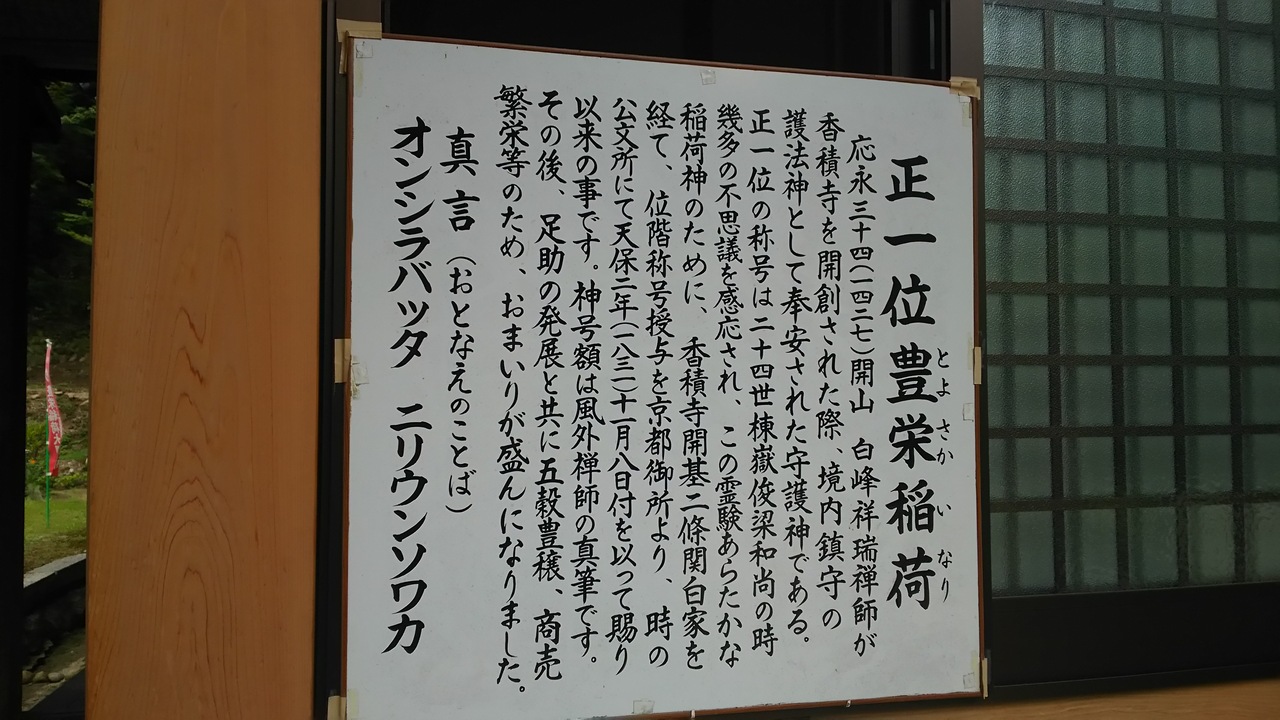 正一位豊栄稲荷
とよさかいなり
応永三十四(一四二七)開山　白峰祥瑞禅師が
香積寺を開創された際、境内鎮守の
護法神として奉安された守護神である。
正一位の称号は二十四世棟嶽俊梁和尚の時
幾多の不思議を感応され、この霊験あらたかな
稲荷神のために、香積寺開基二條関白家を
経て、位階称号授与を京都御所より、時の
公文所にて天保二年(一八三一)十一月八日付を以って賜り
以来の事です。神号額は風外禅師の真筆です。
その後、足助の発展と共に五穀豊穣、商売
繁栄等のため、おまいりが盛んになりました。
真言（おとなえのことば）
オンシラバッタ　ニリウンソワカ